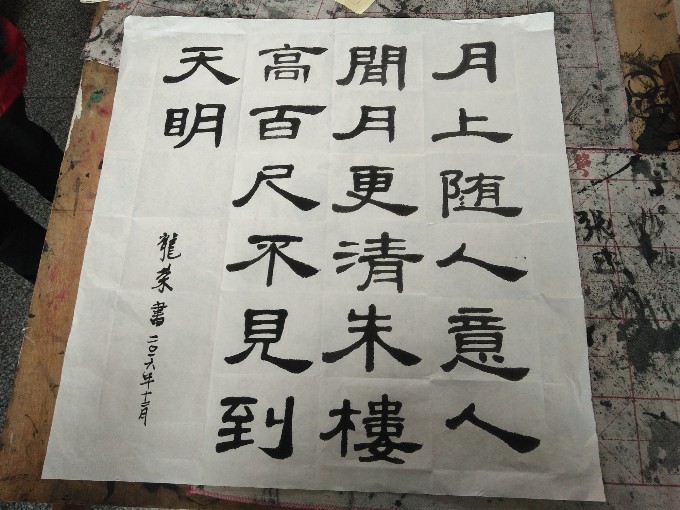 月上随人意人
閒月更清朱樓
高百尺不見到
天明
龍荣書二〇一六年十二月
张